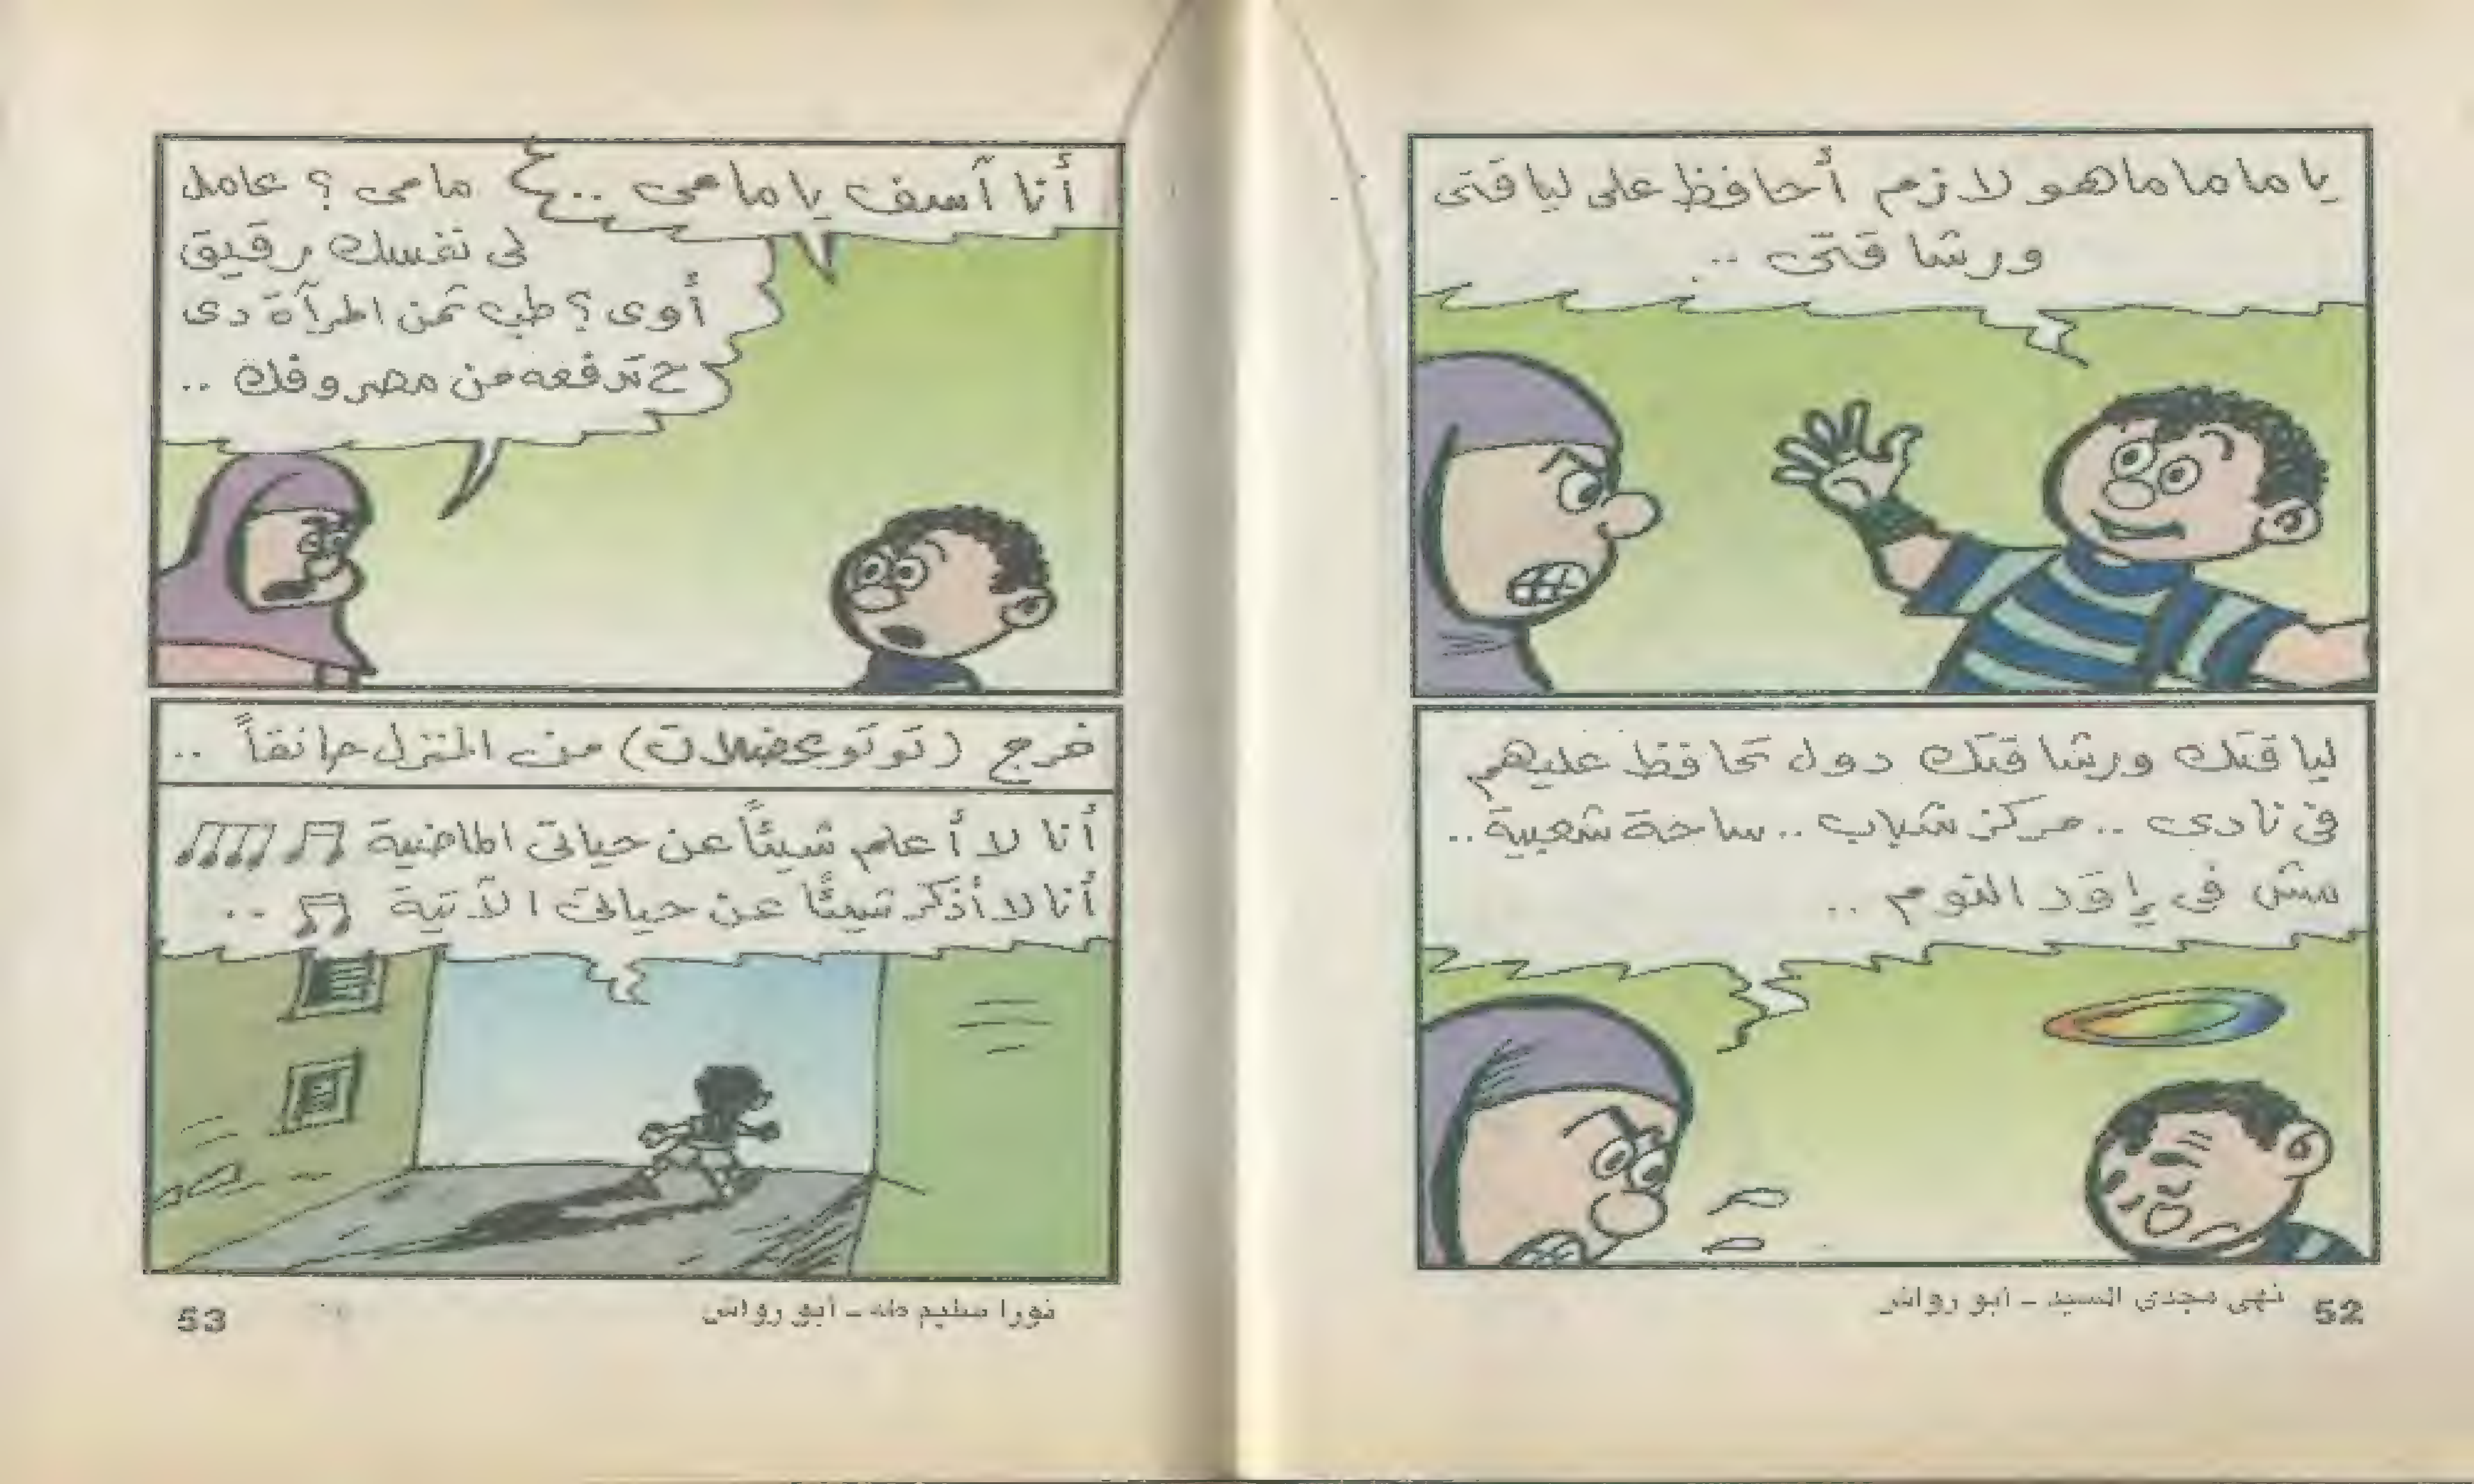 يا ماما ما هو لازم أحافظ على لياقتى
ورشاقتى ..
لياقتك ورشاقتك دول تحافظ عليهم
فى نادى .. مركز شباب .. ساحة شعبية ..
مش فى إوَد النوم ..
نهى مجدى السيد - أبو رواش
52
أنا آسف يا مامى ..
مامى ؟ عامل
لى نفسك رقيق
أوى ؟ طب تمن المرآة دى
ح تدفعه من مصروفك ..
خرج (توتو عضلات) من المنزل حانقاً ..
أنا لا أعلم شيئاً عن حياتى الماضية
أنا لا أذكر شيئاً عن حياتى الآتية ..
نورا سليم طه - أبو رواش
53